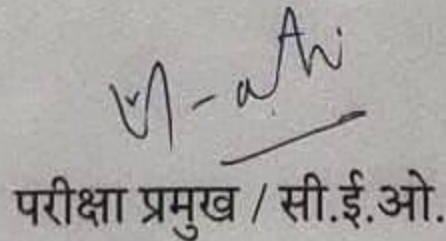 परीक्षा प्रमुख / सी.ई.ओ.